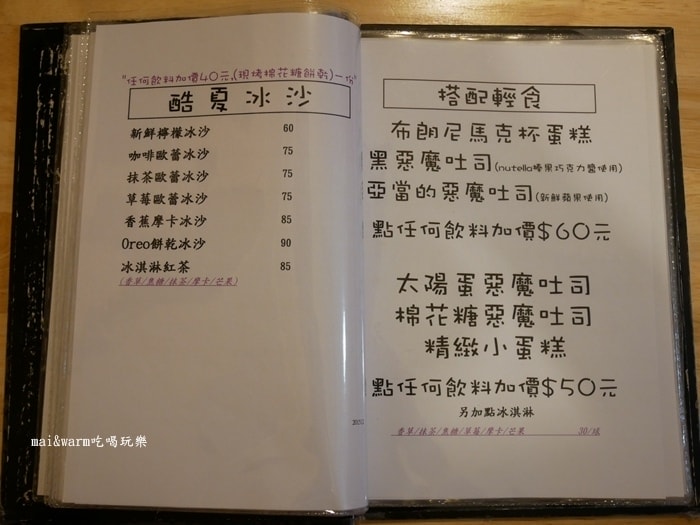 "任何飲料加價40元,(現烤棉花糖餅乾)一份"
酷夏冰沙
新鮮檸檬冰沙 60
咖啡歐蕾冰沙 75
抹茶歐蕾冰沙 75
草莓歐蕾冰沙 75
香蕉摩卡冰沙 85
Oreo餅乾冰沙 90
冰淇淋紅茶 85
(香草/焦糖/抹茶/摩卡/芒果)
搭配輕食
布朗尼馬克杯蛋糕
黑惡魔吐司(nutella榛果巧克力醬使用)
亞當的惡魔吐司(新鮮蘋果使用)
點任何飲料加價$60元
太陽蛋惡魔吐司
棉花糖惡魔吐司
精緻小蛋糕
點任何飲料加價$50元
另加點冰淇淋
香草/抹茶/焦糖/草莓/摩卡/芒果 30/球
mai&warm吃喝玩樂